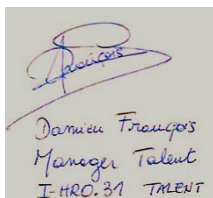 François
Damien François
Manager Talent
I-HRO.31 TALENT